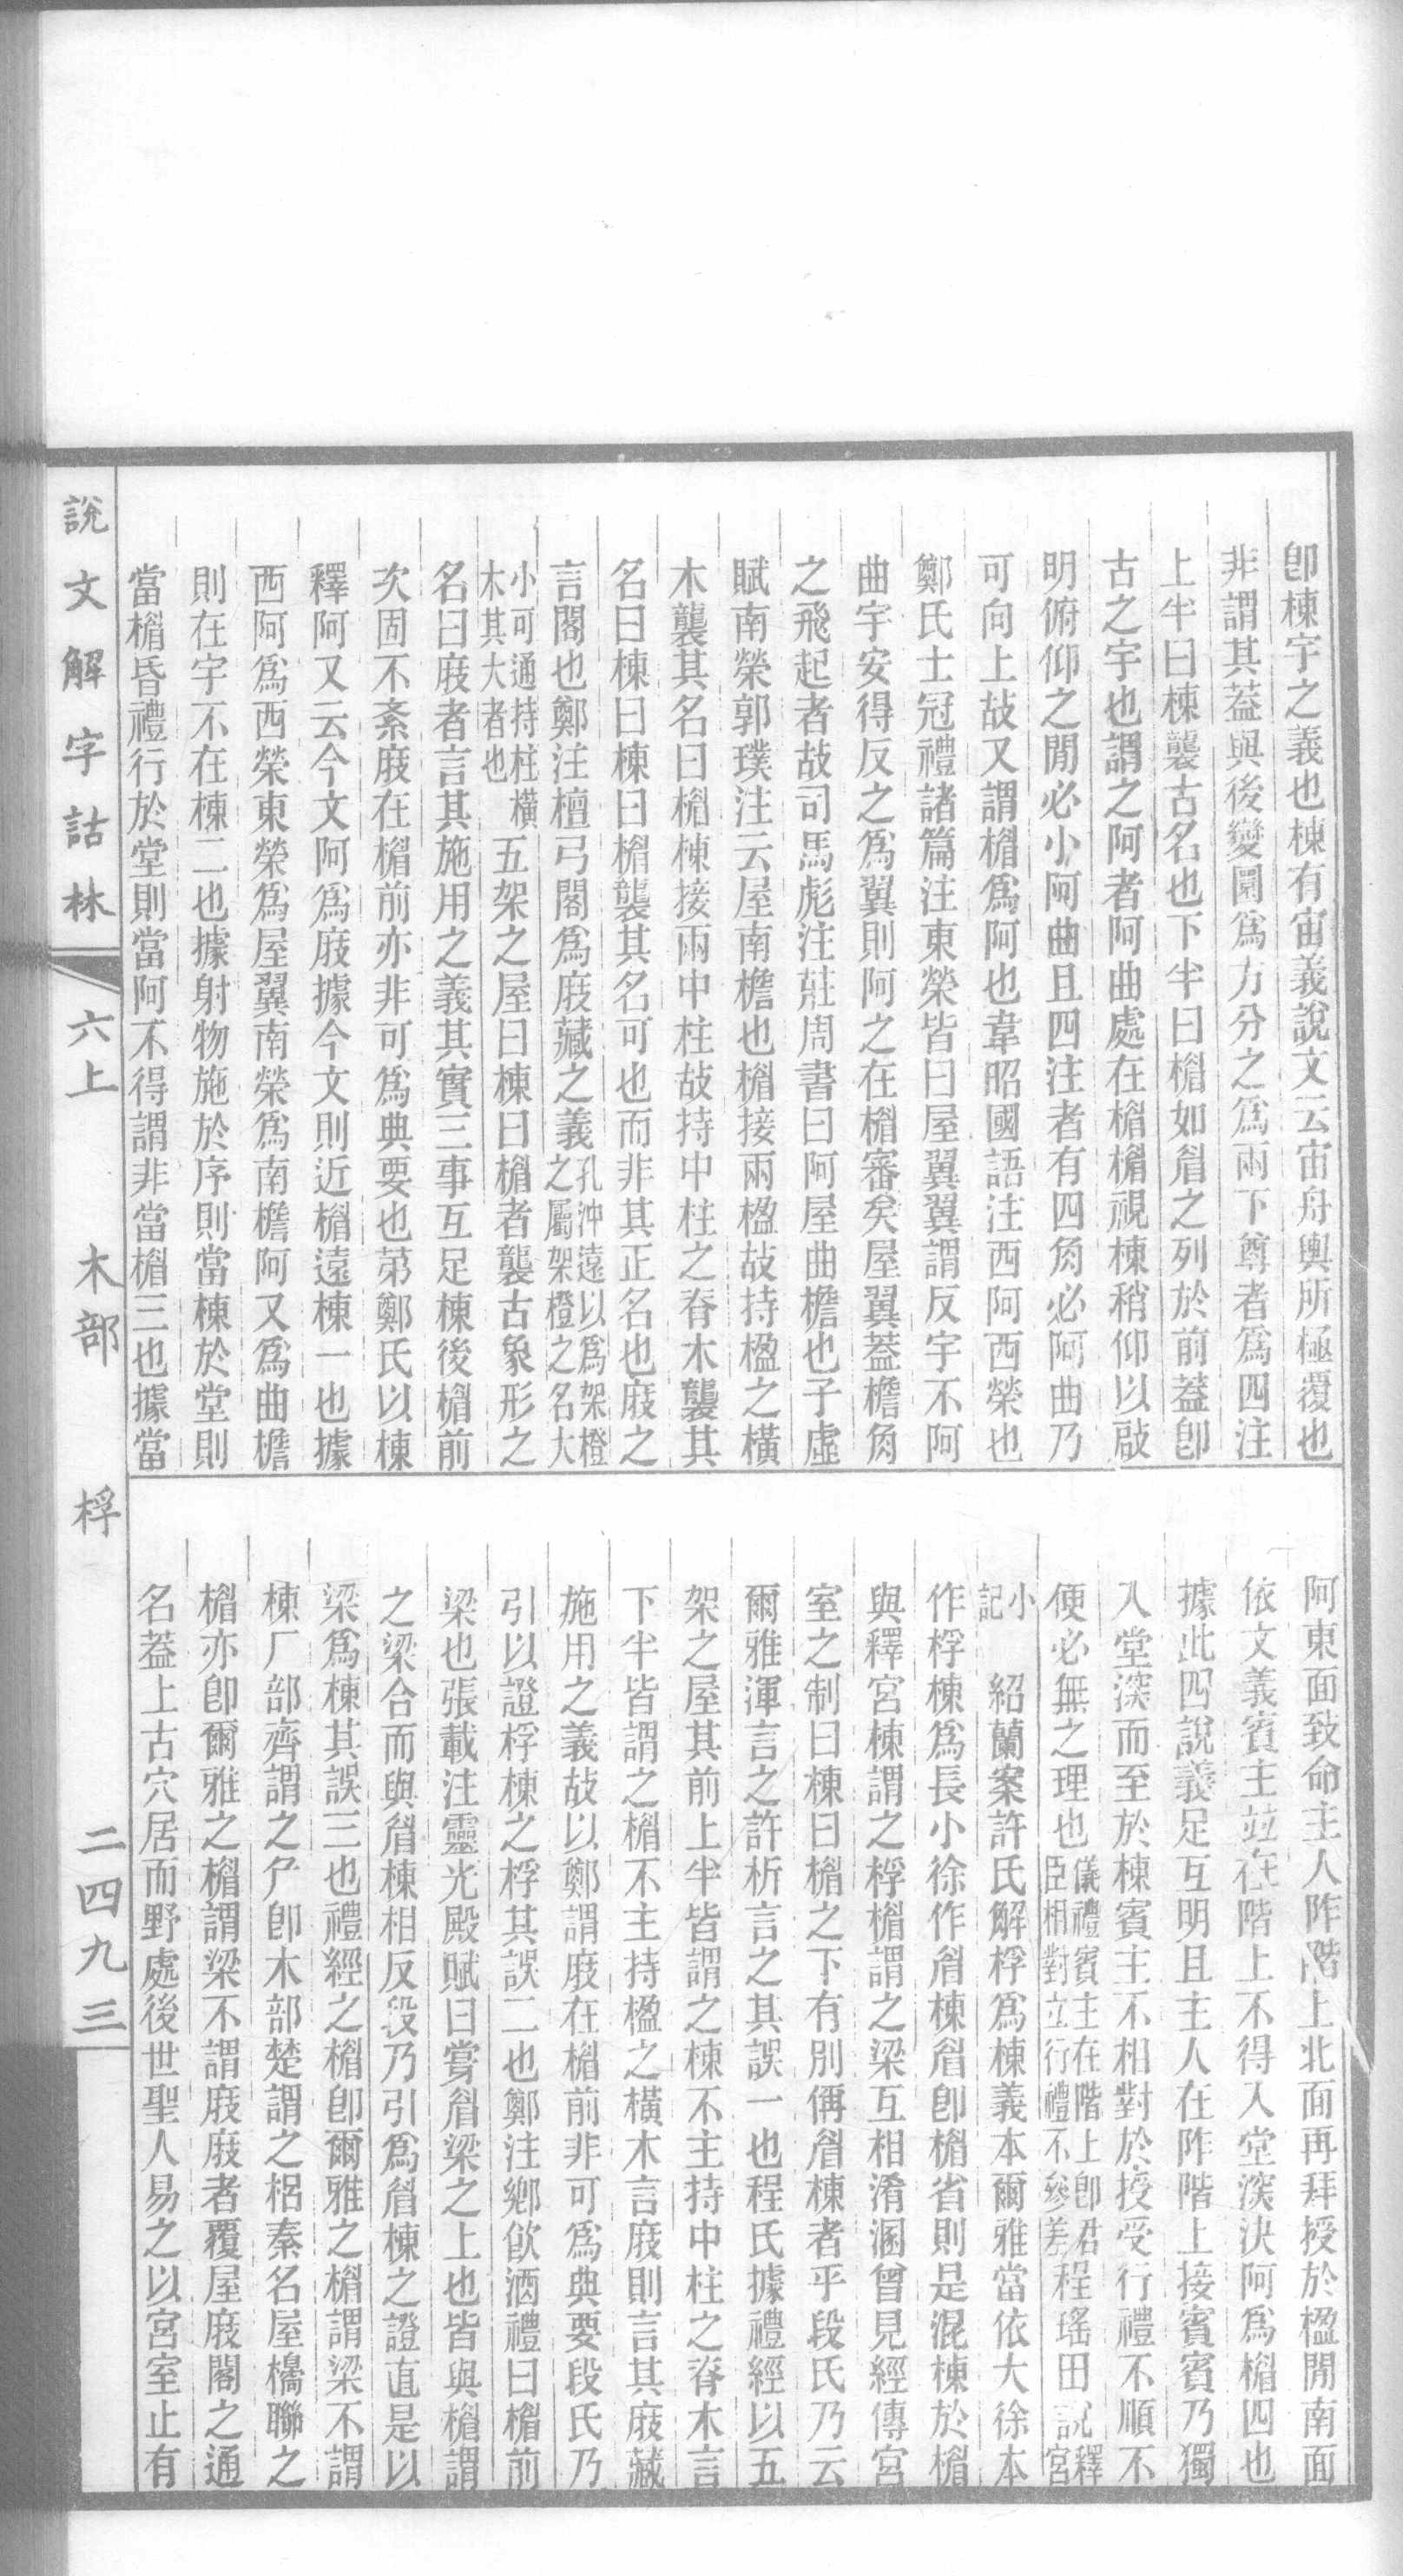 卽棟宇之義也棟有宙義說文云宙舟輿所極覆也
非謂其蓋與後變圜爲方分之爲兩下尊者爲四注
上半曰棟襲古名也下半曰楣如眉之列於前蓋卽
古之宇也謂之阿者阿曲處在楣楣視棟稍仰以啟
明俯仰之閒必小阿曲且四注者有四角必阿曲乃
可向上故又謂楣爲阿也韋昭國語注西阿西榮也
鄭氏士冠禮諸篇注東榮皆曰屋翼翼謂反宇不阿
曲宇安得反之爲翼則阿之在楣審矣屋翼蓋檐角
之飛起者故司馬彪注莊周書曰阿屋曲檐也子虛
賦南榮郭璞注云屋南檐也楣接兩楹故持楹之橫
木襲其名曰楣棟接兩中柱故持中柱之脊木襲其
名曰棟曰棟曰楣襲其名可也而非其正名也庪之
言閣也鄭注檀弓閣爲庪藏之義孔沖遠以爲架橙之屬架橙之名大
小可通持柱橫木其大者也五架之屋曰棟曰楣者襲古象形之
名曰庪者言其施用之義其實三事互足棟後楣前
次固不紊庪在楣前亦非可爲典要也苐鄭氏以棟
釋阿又云今文阿爲庪據今文則近楣遠棟一也據
西阿爲西榮東榮爲屋翼南榮爲南檐阿又爲曲檐
則在宇不在棟二也據射物施於序則當棟於堂則
當楣昏禮行於堂則當阿不得謂非當楣三也據當
阿東面致命主人阼階上北面再拜授於楹閒南面
依文義賓主竝在階上不得入堂深決阿爲楣四也
據此四說義足互明且主人在阼階上接賓賓乃獨
入堂深而至於棟賓主不相對於授受行禮不順不
便必無之理也儀禮賓主在階上卽君臣相對立行禮不參差程瑤田說釋宮
小記　紹蘭案許氏解桴爲棟義本爾雅當依大徐本
作桴棟爲長小徐作眉棟眉卽楣省則是混棟於楣
與釋宮棟謂之桴楣謂之梁互相淆溷曾見經傳宮
室之制曰棟曰楣之下有別偁眉棟者乎段氏乃云
爾雅渾言之許析言之其誤一也程氏據禮經以五
架之屋其前上半皆謂之棟不主持中柱之脊木言
下半皆謂之楣不主持楹之橫木言庪則言其庪藏
施用之義故以鄭謂庪在楣前非可爲典要段氏乃
引以證桴棟之桴其誤二也鄭注鄉飮酒禮曰楣前
梁也張載注靈光殿賦曰㝱眉梁之上也皆與楣謂
之梁合而與眉棟相反段乃引爲眉棟之證直是以
梁爲棟其誤三也禮經之楣卽爾雅之楣謂梁不謂
棟厂部齊謂之厃卽木部楚謂之梠秦名屋櫋聯之
楣亦卽爾雅之楣謂梁不謂庪庪者覆屋庪閣之通
名蓋上古穴居而野處後世聖人易之以宮室止有
說文解字詁林　六上　木部　桴　二四九三